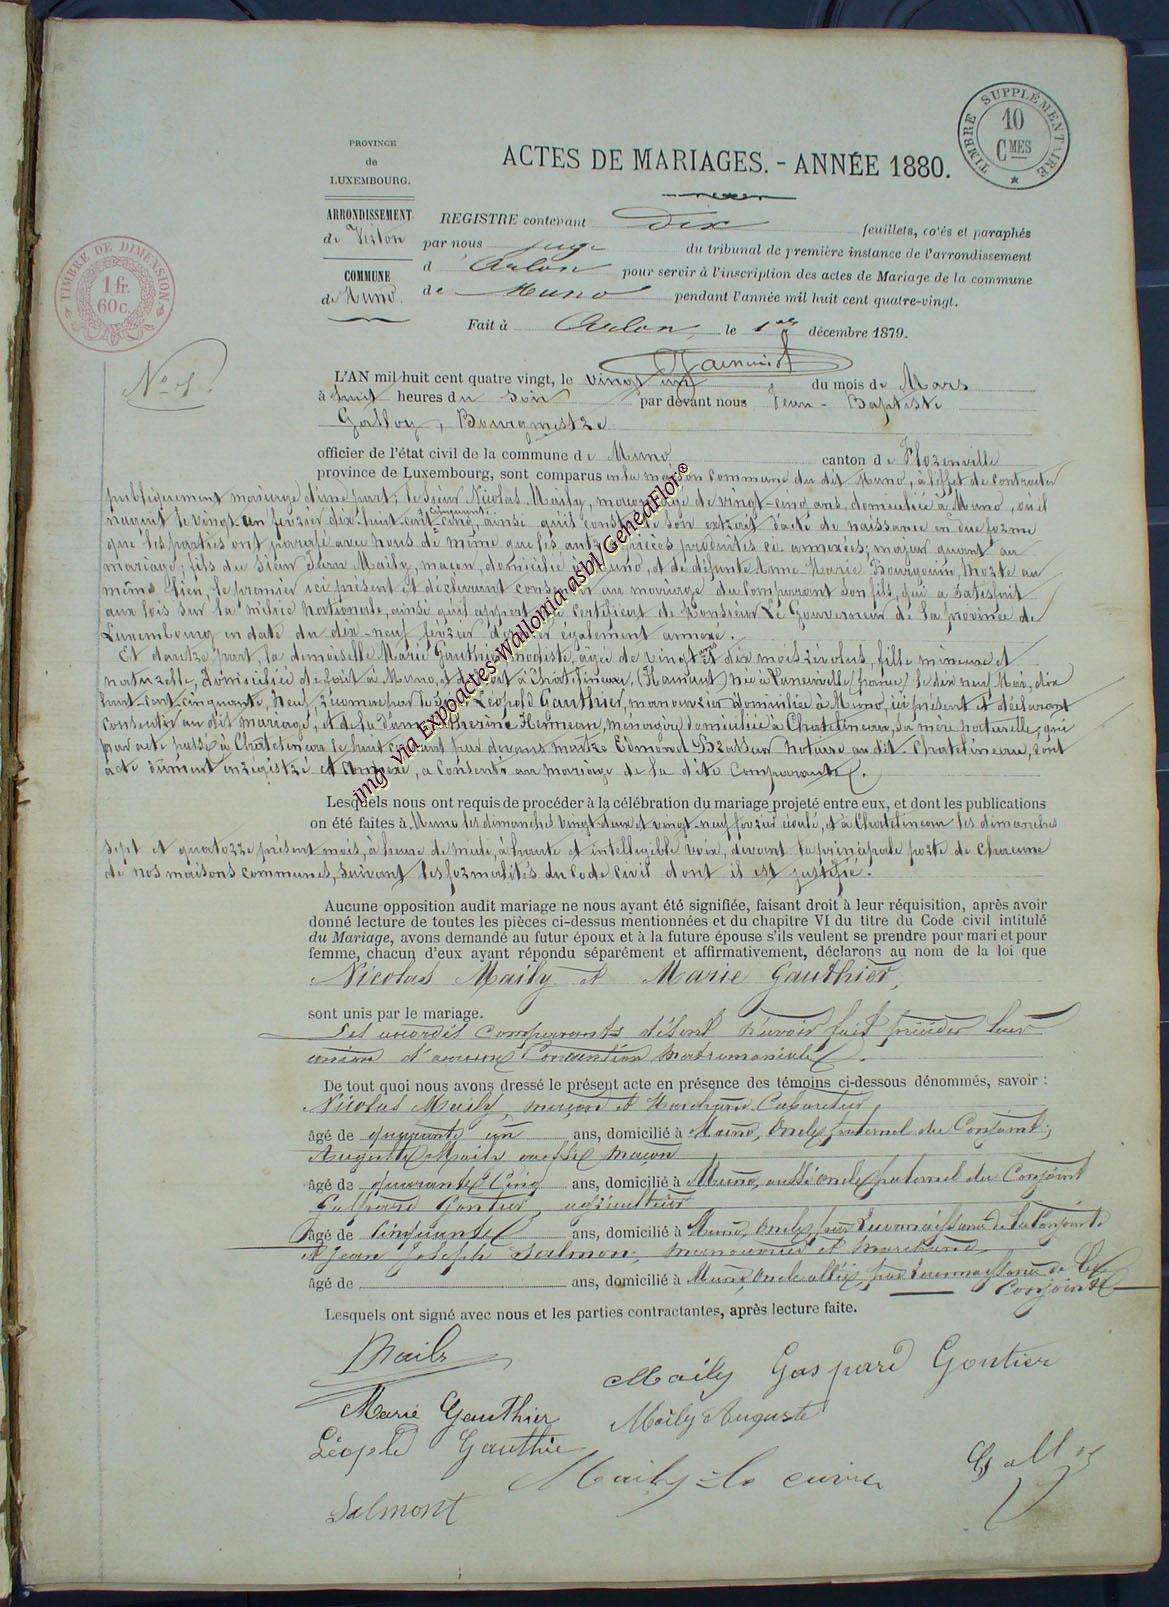 PROVINCE
de
LUXEMBOURG.
ARRONDISSEMENT
de Virton
COMMUNE
de Muno.
TIMBRE DE DIMENSION
1 fr.
60 c.
TIMBRE SUPPLÉMENTAIRE
10
CMES
ACTES DE MARIAGES. - ANNÉE 1880.
REGISTRE contenant Dix feuillets, cotés et paraphés
par nous juge du tribunal de première instance de l'arrondissement
d'Arlon pour servir à l'inscription des actes de Mariage de la commune
de Muno pendant l'année mil huit cent quatre-vingt.
Fait à Arlon, le 1er décembre 1879.
No 1.
L'AN mil huit cent quatre vingt, le vingt un du mois de Mars
à huit heures du soir par devant nous Jean-Baptiste
Galloy, Bourgmestre
officier de l'état civil de la commune de Muno canton de Florenville
province de Luxembourg, sont comparus en la maison commune du dit Muno, à l'effet de contracter
publiquement mariage d'une part, le sieur Nicolas Maily, maçon, âgé de vingt-cinq ans, domicilié à Muno, où il
naquit le vingt un février dix huit cent cinquante cinq, ainsi qu'il conste de son extrait d'acte de naissance en due forme
que les parties ont paraphé avec nous de même que les autres pièces produites ci annexées; majeur quant au
mariage, fils du sieur Maily, maçon, domicilié à Muno, et de défunte Anne-Marie Bourguin, morte au
même lieu, le premier ici présent et déclarant consentir au mariage du comparant son fils, qui a satisfait
aux lois sur la milice nationale, ainsi qu'il appert du certificat de Monsieur Le Gouverneur de la province de
Luxembourg en date du dix-neuf février dernier également annexé.
Et d'autre part, la demoiselle Marie Gauthier, modiste, âgée de vingt ans dix mois révolus, fille mineure et
naturelle, domiciliée de fait à Muno, et de droit à Châtelineau, (Hainaut) née à Vaneuville (france) le dix neuf Mai, dix
huit cent cinquante neuf reconnue par le sieur Léopold Gauthier, manouvrier domicilié à Muno, ici présent et déclarant
consentir au dit mariage, et de la Dame Herman, ménagère domiciliée à Chatelineau, sa mère naturelle, qui
par acte passé à Châtelineau le huit courant par devant maître Edmond Brasseur notaire au dit Chatelineau, dont
acte dûment enregistré et annexé, a consenti au mariage de la dite comparante.
Lesquels nous ont requis de procéder à la célébration du mariage projeté entre eux, et dont les publications
on été faites à Muno les dimanches vingt deux et vingt-neuf février écoulé, et à Chatelineau les dimanches
sept et quatorze présent mois, à heure de midi, à haute et intelligible voix, devant la principale porte de chacune
de nos maisons communes, suivant les formalités du code civil dont il est justifié.
Aucune opposition audit mariage ne nous ayant été signifiée, faisant droit à leur réquisition, après avoir
donné lecture de toutes les pièces ci-dessus mentionnées et du chapitre VI du titre du Code civil intitulé
du Mariage, avons demandé au futur époux et à la future épouse s'ils veulent se prendre pour mari et pour
femme, chacun d'eux ayant répondu séparément et affirmativement, déclarons au nom de la loi que
Nicolas Maily et Marie Gauthier,
sont unis par le mariage.
Les comparants disent n'avoir fait précéder leur
union d'aucune Convention Matrimoniale.
De tout quoi nous avons dressé le présent acte en présence des témoins ci-dessous dénommés, savoir :
Nicolas Maily, maçon et Marchand Cabaretier,
âgé de quarante un ans, domicilié à Muno, Oncle paternel du Conjoint;
Auguste Maily aussi maçon
âgé de quarante Cinq ans, domicilié à Muno, aussi oncle paternel du Conjoint
Gaspard Gontier, agriculteur
âgé de Cinquante ans, domicilié à Muno, Oncle par reconnaissance de la Conjointe
et Jean Joseph Salmon, manouvrier et marchand,
âgé de ans, domicilié à Muno, Oncle allié, par reconnaissance de la
Conjointe
Lesquels ont signé avec nous et les parties contractantes, après lecture faite.
Maily
Maily Gaspard Gontier
Marie Gauthier
Maily Auguste
Léopold Gauthier
Maily
Galloy
Salmont
img. via Expoactes-Wallonia asbl / GeneaFlor®